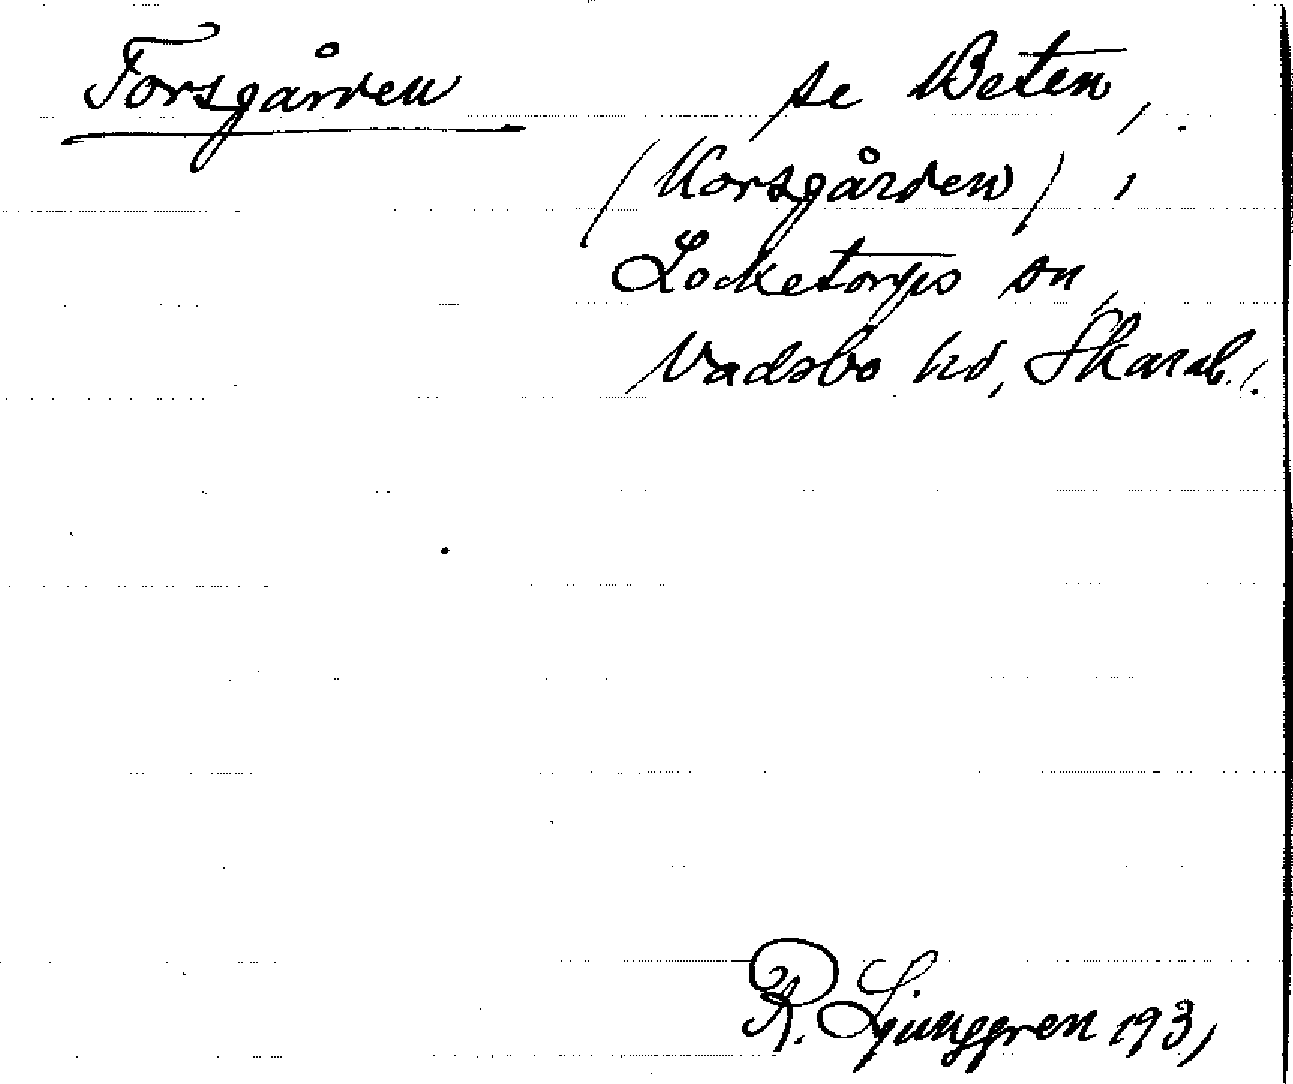 Forsgården se Beten,
(Korsgården),
Locketorps sn,
Vadsbo hd, Skarab. l.
R. Ljunggren 1931